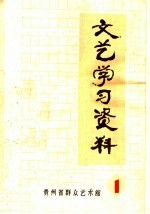 文艺学习资料
贵州省群众艺术馆
1